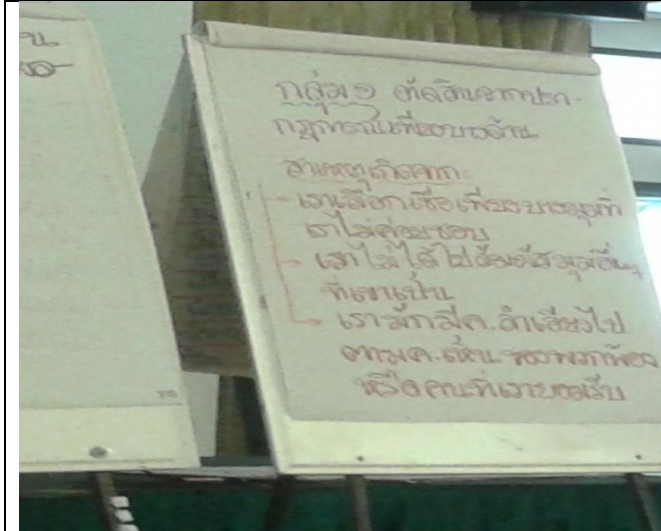 กลุ่ม ๑ ตัดสินจากปรา-
กฏการณ์เพียงบางด้าน
สาเหตุเกิดจาก
- เราเลือกเชื่อเพียงบางมุมที่
เราไม่ค่อยชอบ
- เราไม่ได้ไปสัมผัสมุมอื่นๆ
ที่เขาเป็น
เรามักมีค.ลำเอียงไป
ตามค.เห็น ของพวกพ้อง
หรือคนที่เรายอมรับ